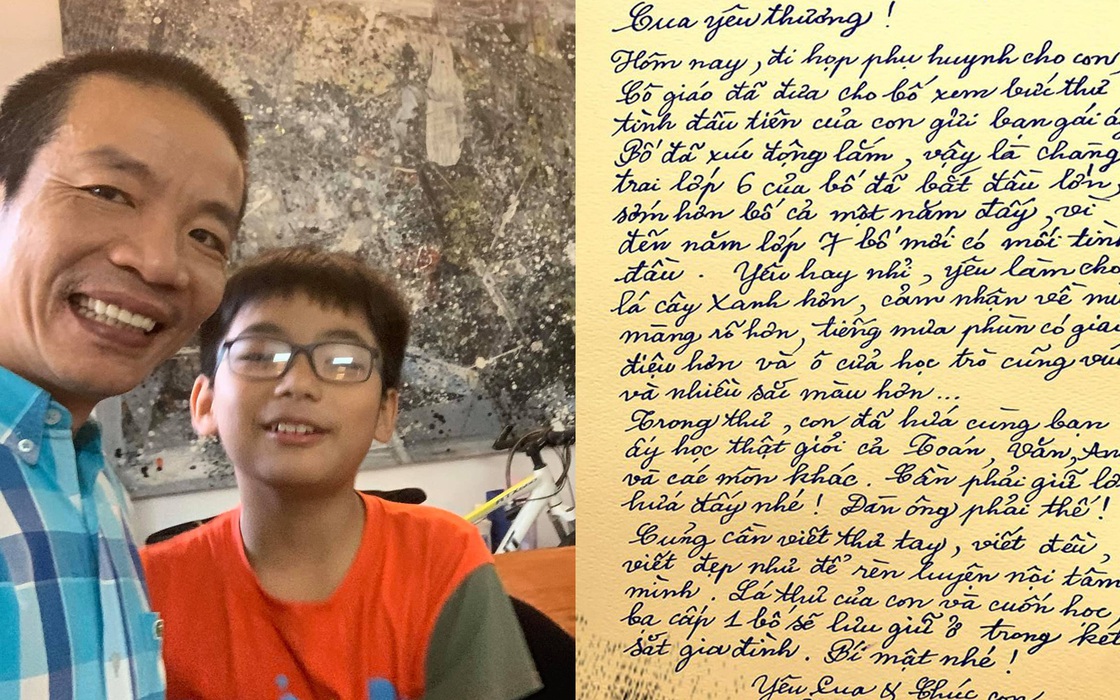 Cua yêu thương !
Hôm nay, đi họp phụ huynh cho con
Cô giáo đã đưa cho bố xem bức thư
tình đầu tiên của con gửi bạn gái
Bố đã xúc động lắm, vậy là chàng
trai lớp 6 của bố đã bắt đầu lớn,
sớm hơn bố cả một năm đấy, vì
đến năm lớp 7 bố mới có mối tình
đầu. Yêu hay nhỉ, yêu làm cho
lá cây xanh hơn, cảm nhận về
màng rõ hơn, tiếng mưa phùn có
điệu hơn và ô cửa học trò cũng
và nhiều sắc màu hơn...
Trong thư, con đã hứa cùng bạn
ấy học thật giỏi cả Toán, Văn,
và các môn khác. Cần phải giữ
hứa đấy nhé! Đàn ông phải thế!
Cũng cần viết thư tay, viết đều,
viết đẹp như để rèn luyện nội tâm
mình. Lá thư của con và cuốn học
bạ cấp 1 bố sẽ lưu giữ ở trong két
sắt gia đình. Bí mật nhé!
Yêu Cua & Chúc con